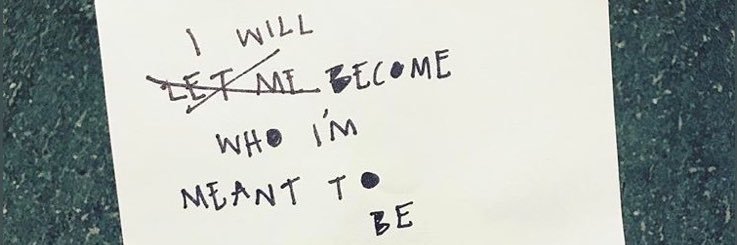 I WILL
LET ME BECOME
WHO I'M
MEANT TO
BE